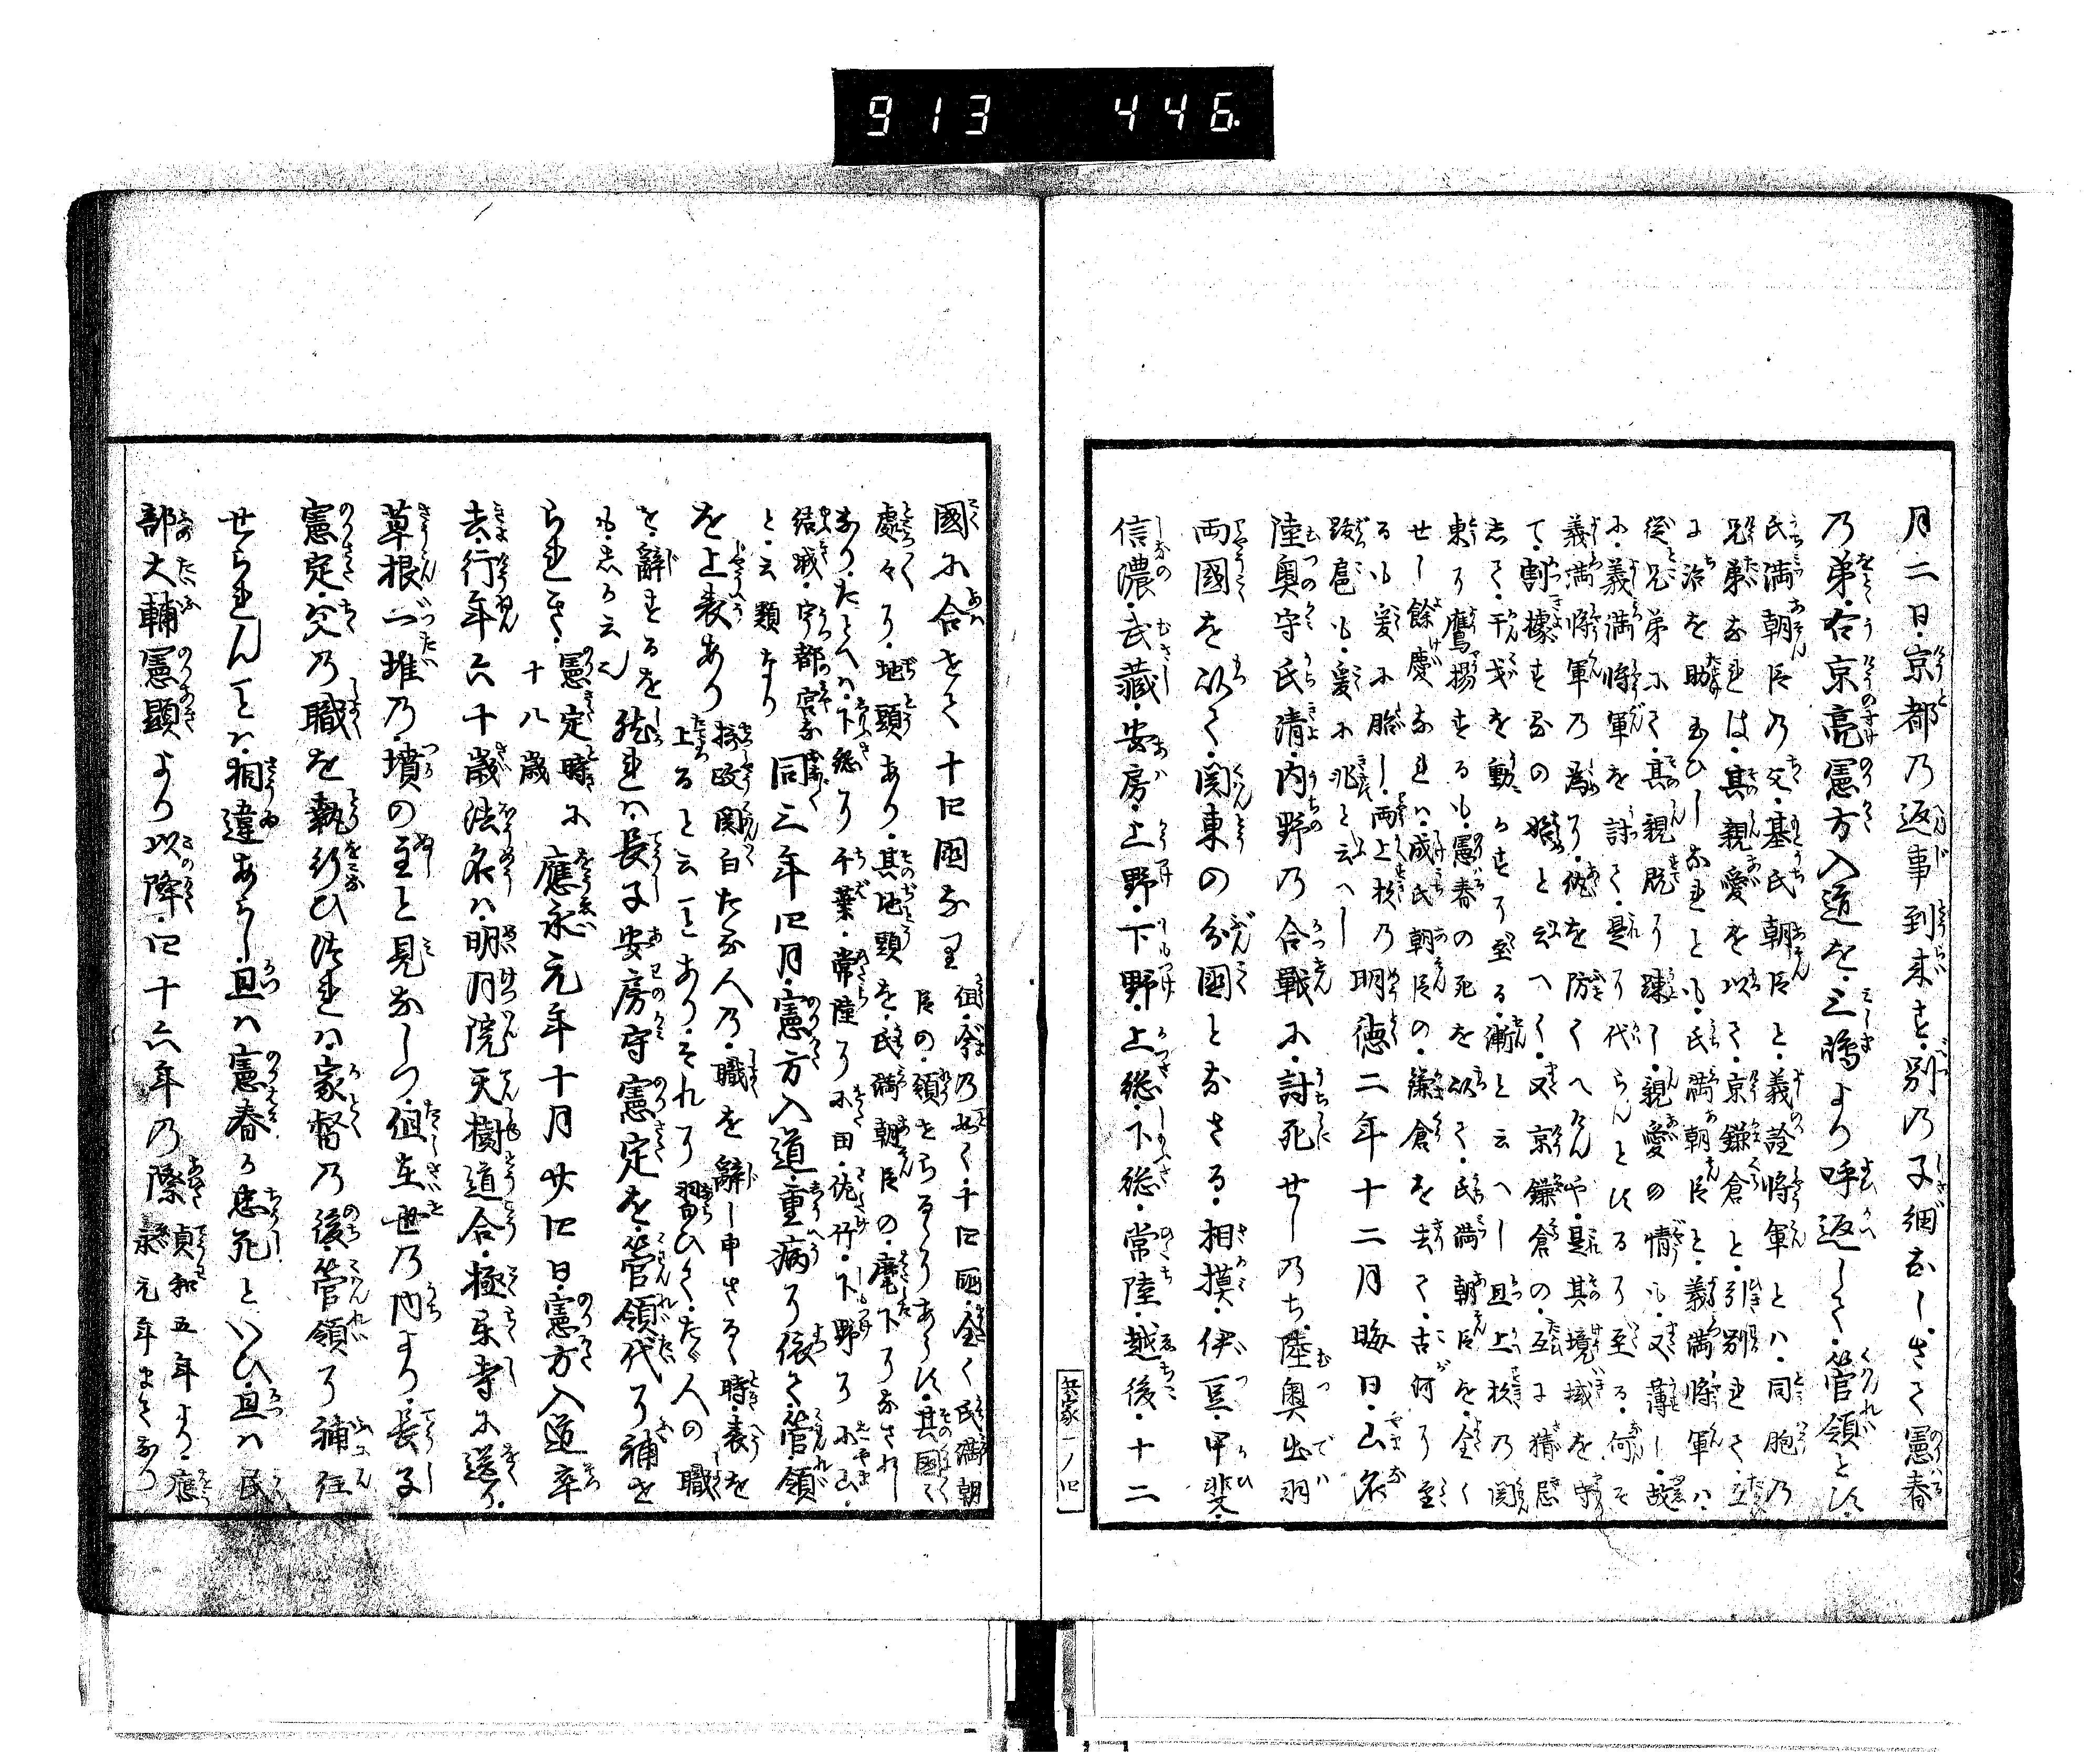 913 446.
月二日・京都乃返事到来を・別乃子細なし・さて憲春
乃弟・右京亮憲方入道を・三嶋より呼返して・管領とす・
氏満朝臣乃父・基氏朝臣と・義詮将軍とハ・同胞乃
兄弟なれは・其親愛を以て・京鎌倉と・引別れて・立
に治を助玉ひしなれとも・氏満朝臣と・義満将軍ハ・
従兄弟にて・其親既に疎し・親愛の情も・又薄し・故
に・義満将軍を討て・是に代らんとするに至る・何そ
義満将軍乃為に・仇を防くへけんや・是其境域を守
て・割據するの始と云へく・又京鎌倉の・互に猜忌
して・干戈を動かすに至る・漸と云へし・且上杉乃関
東に鷹揚するも・憲春の死を以て・氏満朝臣を・全く
せし餘慶なれハ・成氏朝臣の・鎌倉を去て・古河に至
るも爰に胎し・両上杉乃
跋扈も・爰に兆と云へし
明徳二年十二月晦日・山名
陸奥守氏清・内野乃合戦に・討死せしのち・陸奥出羽
両國を以て・関東の分國となさる・相摸・伊豆・甲斐・
信濃・武蔵・安房・上野・下野・上総・下総・常陸・越後・十二
兵家一ノ四
國に合せて十四國なり
但・今乃如く・十四國・全く氏満朝
臣の・領せらるゝにあらす・其國て
處々に・地頭あり・其地頭を・氏満朝臣の・麾下になされし
なり・たとへハ・下総に千葉・常陸に小田・佐竹・下野に小山・
結城・宇都宮な
と・云類なり
同三年四月・憲方入道・重病に依て・管領
を上表あり
摂政関白たる人乃・職を辭し申さるゝ時・表を
上ると云ことあり・それに習ひて・たゞ人の職
を・辭するを
も・しか云也
然れハ・長子安房守憲定を・管領代に補せ
られき・憲定時に
十八歳
應永元年十月廿四日・憲方入道卒
去行年六十歳法名ハ・明月院天樹道合・極楽寺に送る・
草根一堆乃・墳の主と見なしつ・但在世乃内より・長子
憲定・父乃職を執行ひ済れハ・家督乃後・管領に補任
せられんこと・相違あらし・且ハ憲春か忠死といひ・且ハ民
部大輔憲顕より以降・四十六年乃際
貞和五年より・應
永元年まてなり